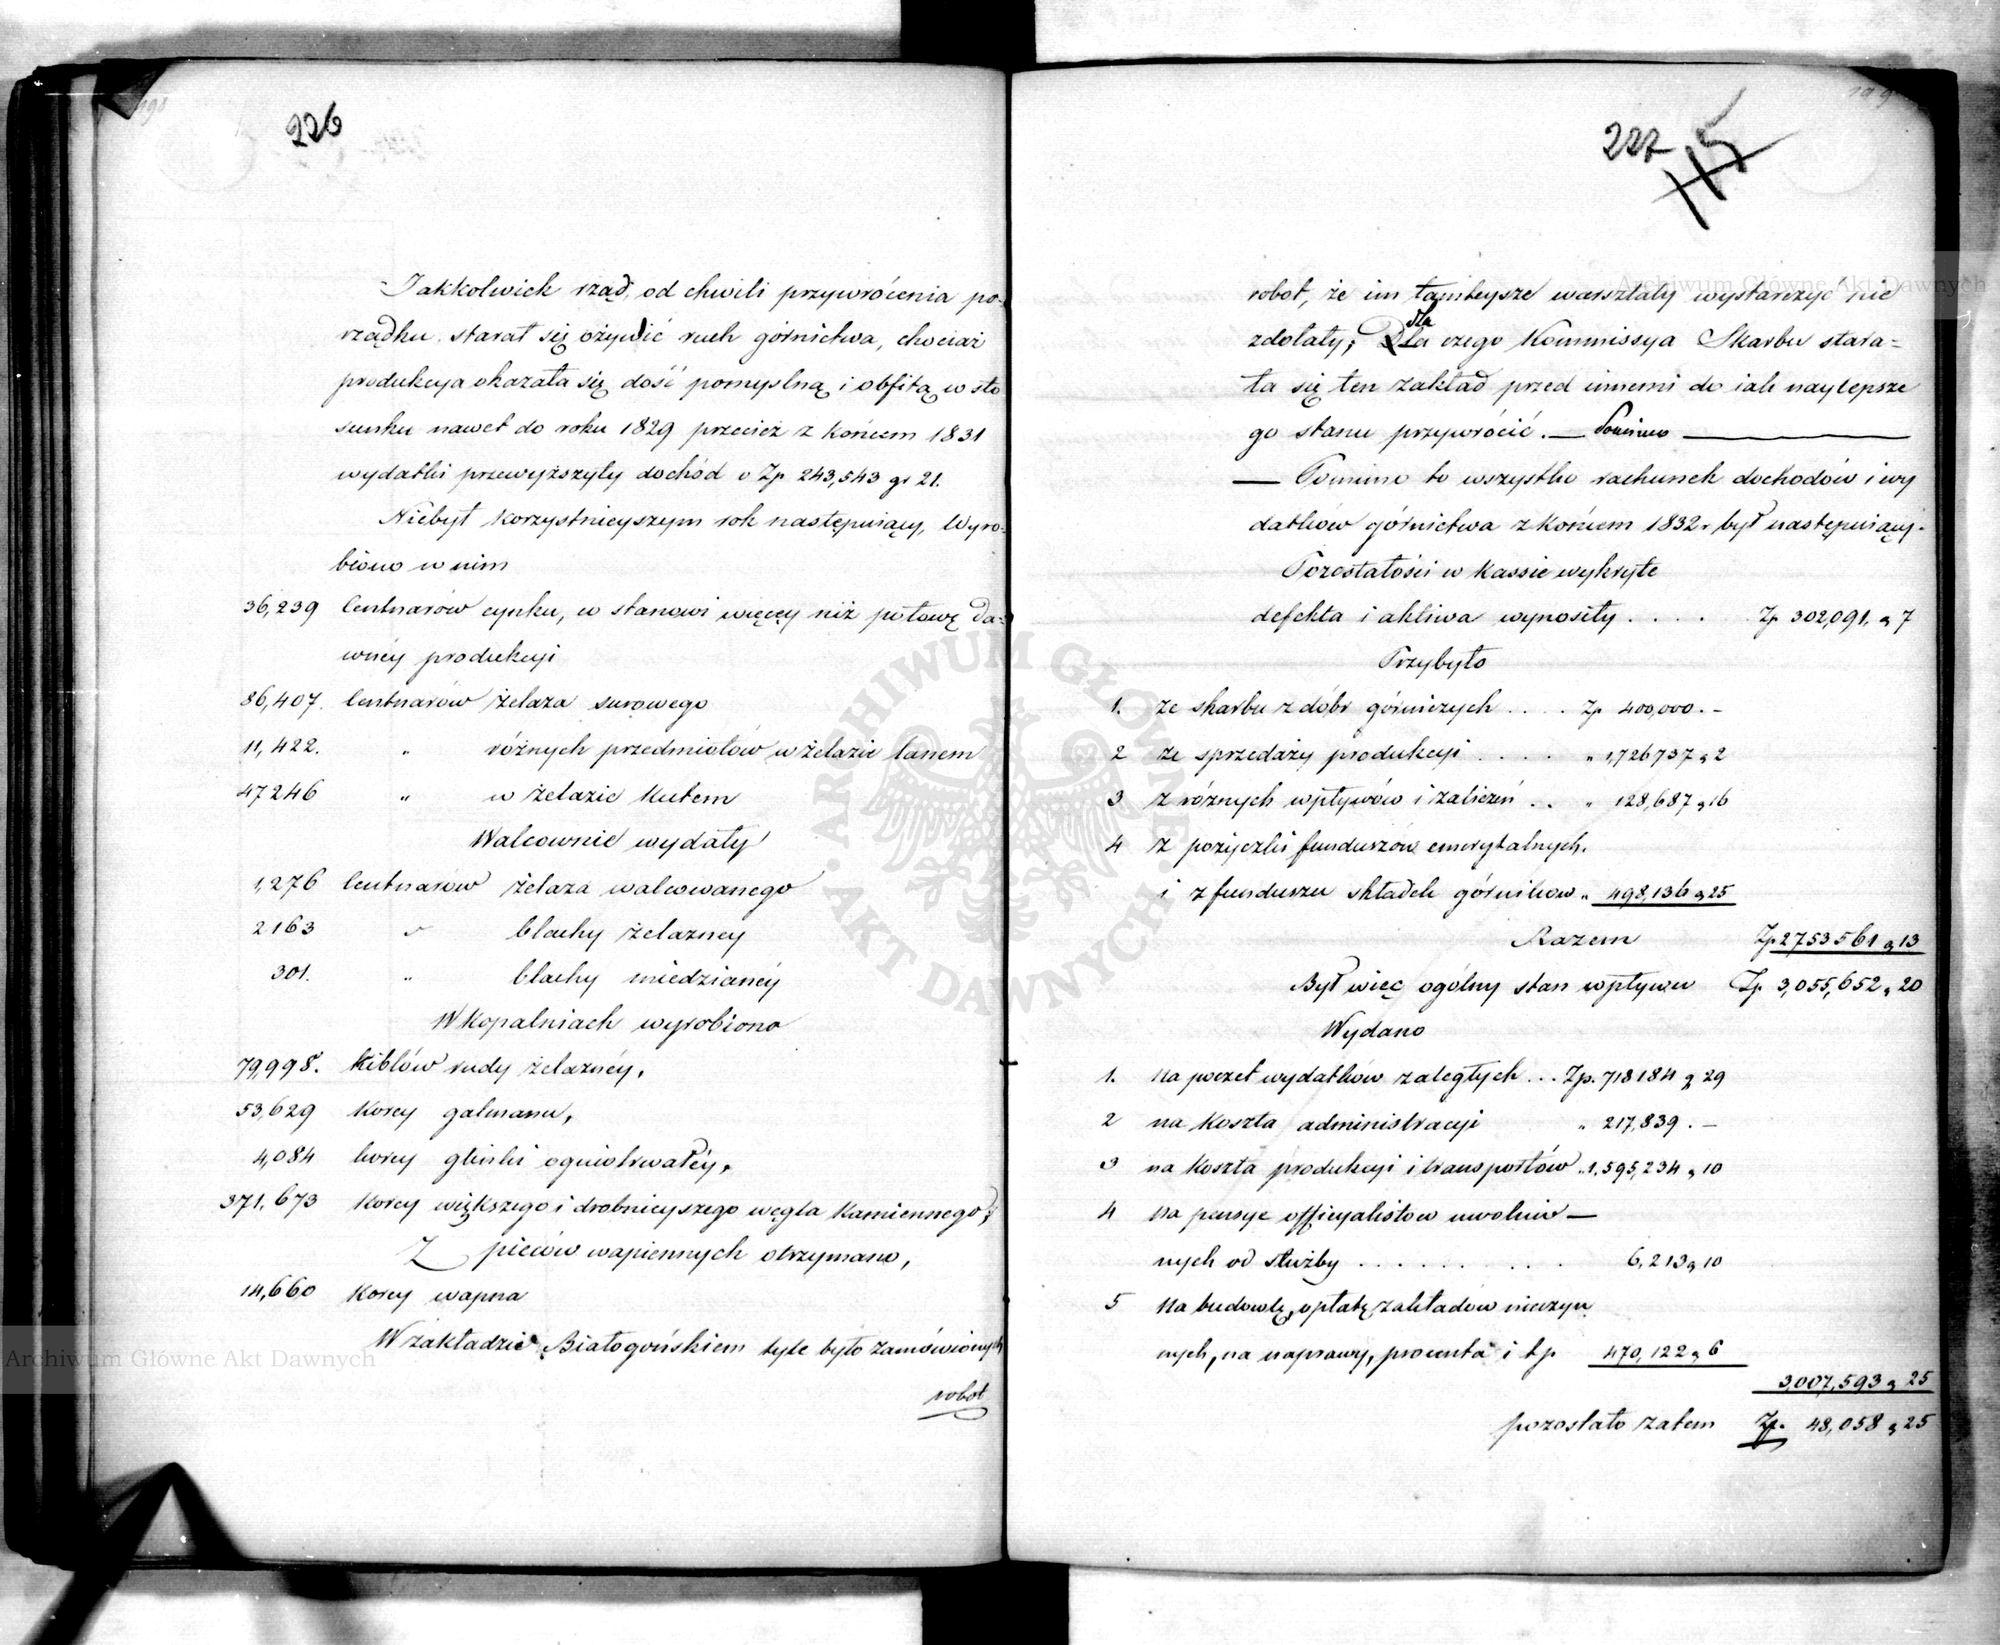 226
Jakkolwiek rząd, od chwili przywrócenia po-
rządku starał się ożywić ruch górnictwa, chociaż
produkcya okazała się dość pomyślną i obfitą w sto
sunku nawet do roku 1829 przecież z końcem 1831
wydatki przewyższyły dochód o Zp 243,543 gr 21.
Niebył korzystnieyszym rok następuiący, Wyro-
biono w nim
36,239 Centnarów cynku, co stanowi więcéy niż połowę da-
wnéy produkcyi
86,407. Centnarów żelaza surowego
11,422. " różnych przedmiotów w żelazie lanem
47246 " w żelazie kutem
Walcownie wydały
1,276 Centnarów żelaza walcowanego
2163 " blachy żelaznéy
301. " blachy miedzianéy
W Kopalniach wyrobiono
79,998. Kiblów rudy żelaznéy,
53,629 Korcy galmanu,
4,084 korcy glinki ogniotrwałéy,
371,673 Korcy większego i drobnieyszego węgla Kamiennego,
Z pieców wapiennych otrzymano,
14,660 Korcy wapna
W zakładzie Białogońskiem tyle było zamówionych
robot
227
115
robot, że im tamteysze warsztaty wystarczyć nie
zdołały; dla
Dla czego Kommissya Skarbu stara=
ła się ten zakład przed innemi do iak naylepsze
go stanu przywrócić. — Pomimo —
— Pomimo to wszystko rachunek dochodów i wy
datków górnictwa z końcem 1832 r był następuiący.
Pozostałości w Kassie wykryte
defekta i aktiva wynosiły . . . . Zp 302,091. „ 7
Przybyło
1. ze skarbu z dóbr górniczych . . . . Zp 400,000. –
2 ze sprzedaży produkcyi . . . . " 1,726737 „ 2
3 z różnych wpływów i zaliczeń . . " 128,687 „ 16
4 z pożyczki funduszów emerytalnych.
i z funduszu składek górników " 498,136 „ 25
Razem Zp 2753561 „ 13
Był więc ogólny stan wpływu Zp 3,055,652 „ 20
Wydano
1. na poczet wydatków zaległych . . . Zp. 718184 „ 29
2 na koszta administracyi " 217,839 . –
3 na koszta produkcyi i transportów " 1,595,234 „ 10
4 na pensye officyalistow uwolnio —
nych od służby . . . . . . . 6,213 „ 10
5 na budowlę, opłatę zakładów nieczyn
nych, na naprawy, procenta i t p 470,122 „ 6
3,007,593 „ 25
pozostało zatem Zp. 48,058 „ 25
ARCHIWUM GŁÓWNE AKT DAWNYCH
Archiwum Główne Akt Dawnych
Archiwum Główne Akt Dawnych